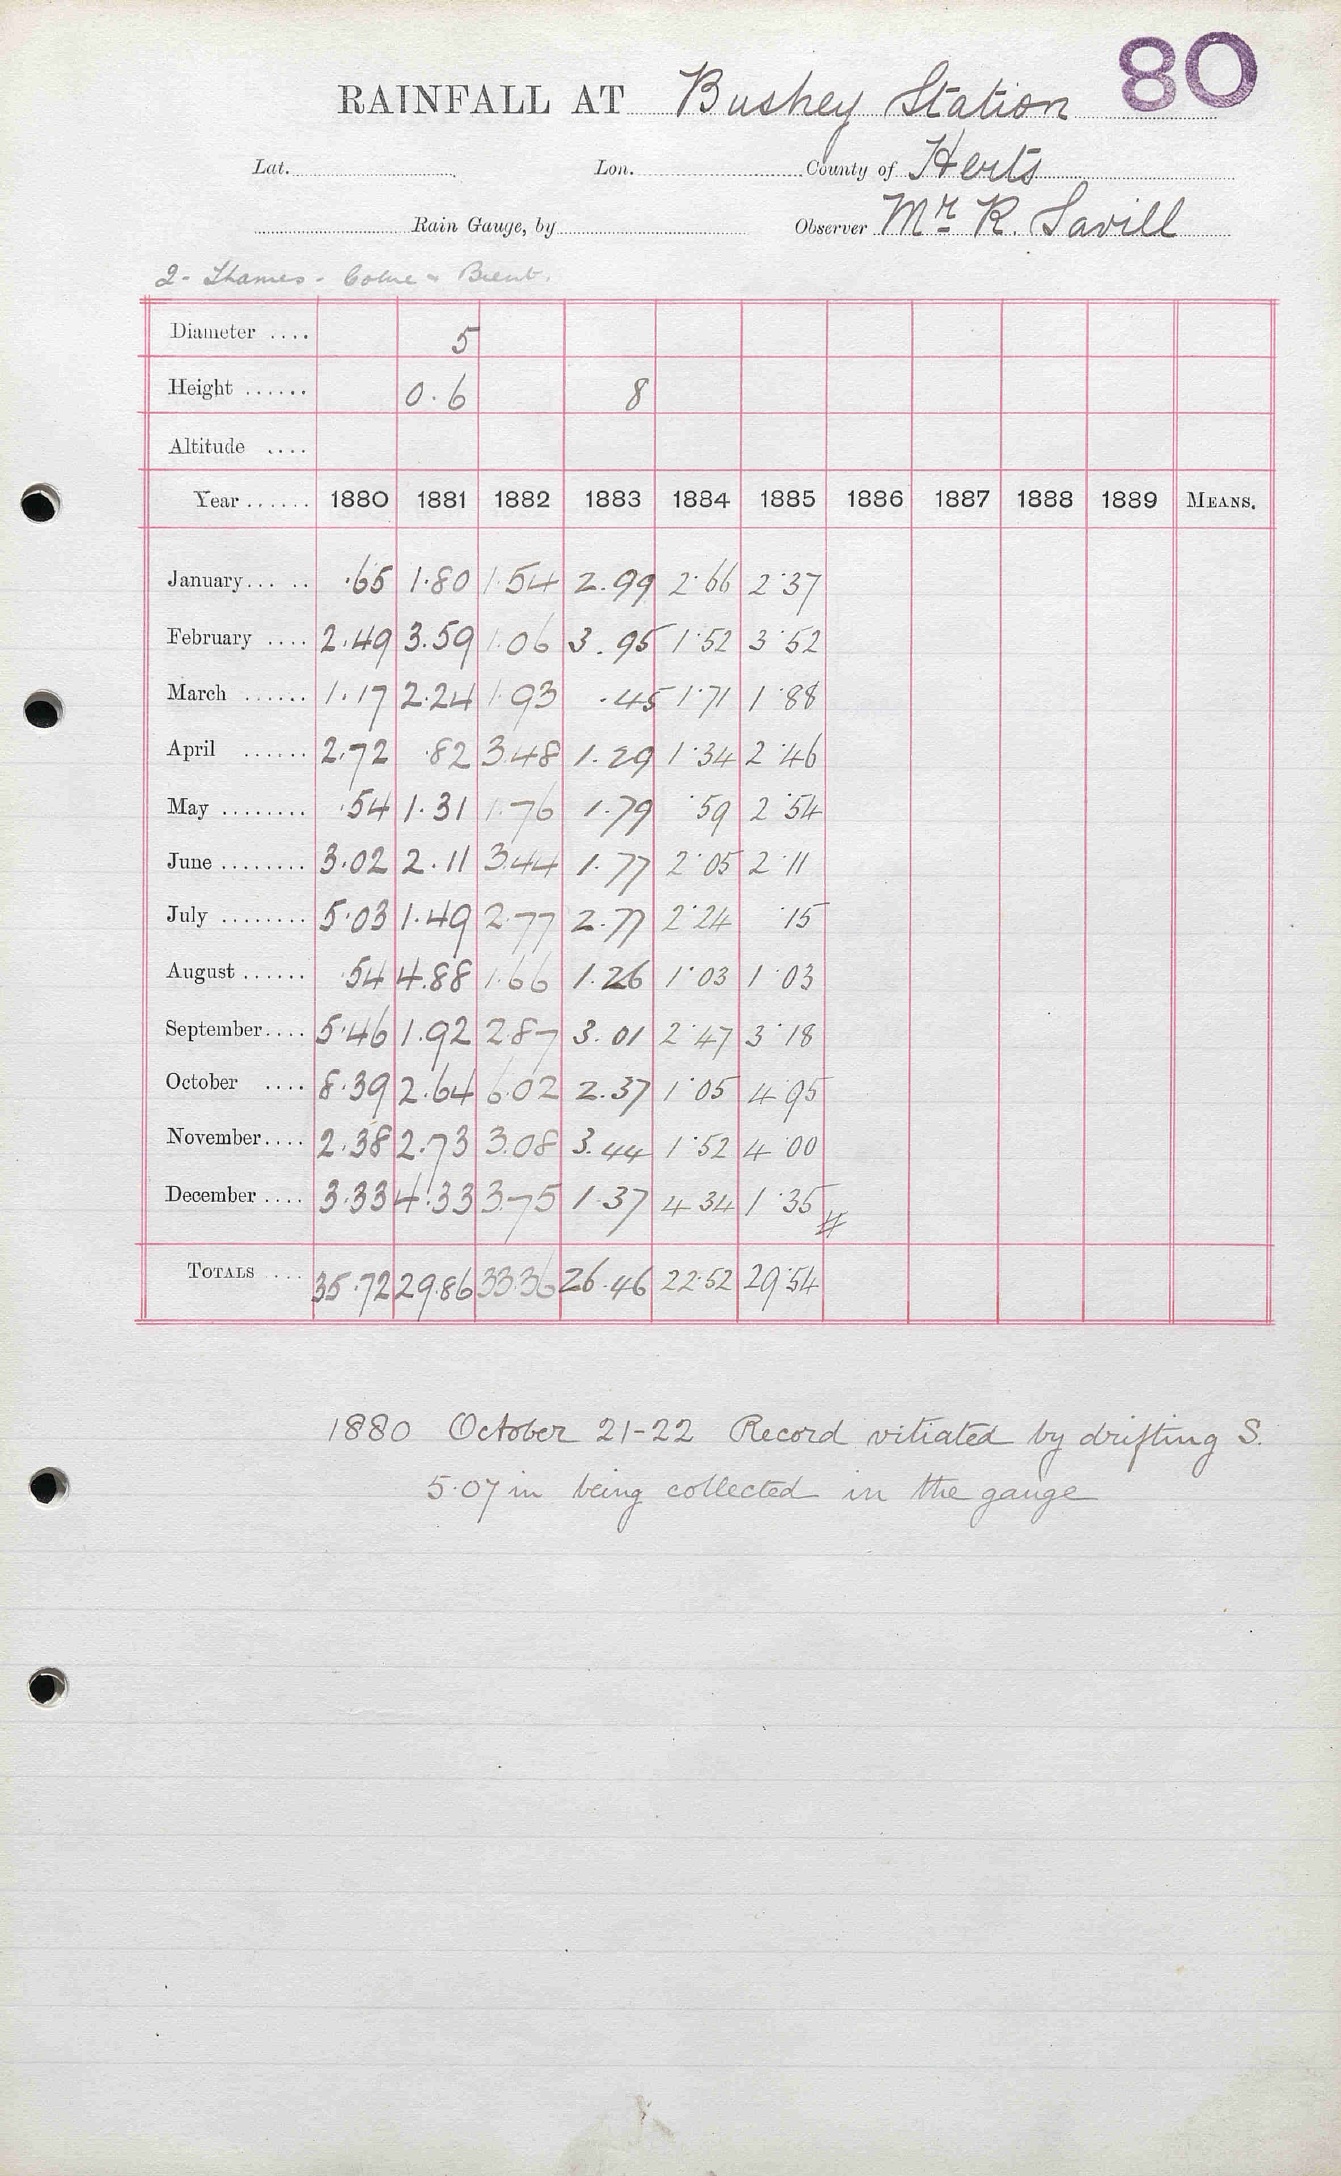 80
RAINFALL AT Bushey Station
Lat. Lon. County of Herts
Rain Gauge, by Observer Mr R. Savill
2 - Thames - Colne & Brent.
Diameter .... 5
Height ...... 0.6 8
Altitude ....
Year ...... 1880 1881 1882 1883 1884 1885 1886 1887 1888 1889 MEANS.
January... .. .65 1.80 1.54 2.99 2.66 2.37
February .... 2.49 3.59 1.06 3.95 1.52 3.52
March ...... 1.17 2.24 1.93 .45 1.71 1.88
April ...... 2.72 .82 3.48 1.29 1.34 2.46
May ........ .54 1.31 1.76 1.79 .59 2.54
June ........ 3.02 2.11 3.44 1.77 2.05 2.11
July ........ 5.03 1.49 2.77 2.77 2.24 .15
August ...... .54 4.88 1.66 1.26 1.03 1.03
September.... 5.46 1.92 2.87 3.01 2.47 3.18
October .... 8.39 2.64 6.02 2.37 1.05 4.95
November.... 2.38 2.73 3.08 3.44 1.52 4.00
December .... 3.33 4.33 3.75 1.37 4.34 1.35 #
TOTALS .... 35.72 29.86 33.36 26.46 22.52 29.54
1880 October 21-22 Record vitiated by drifting S.
5.07 in being collected in the gauge